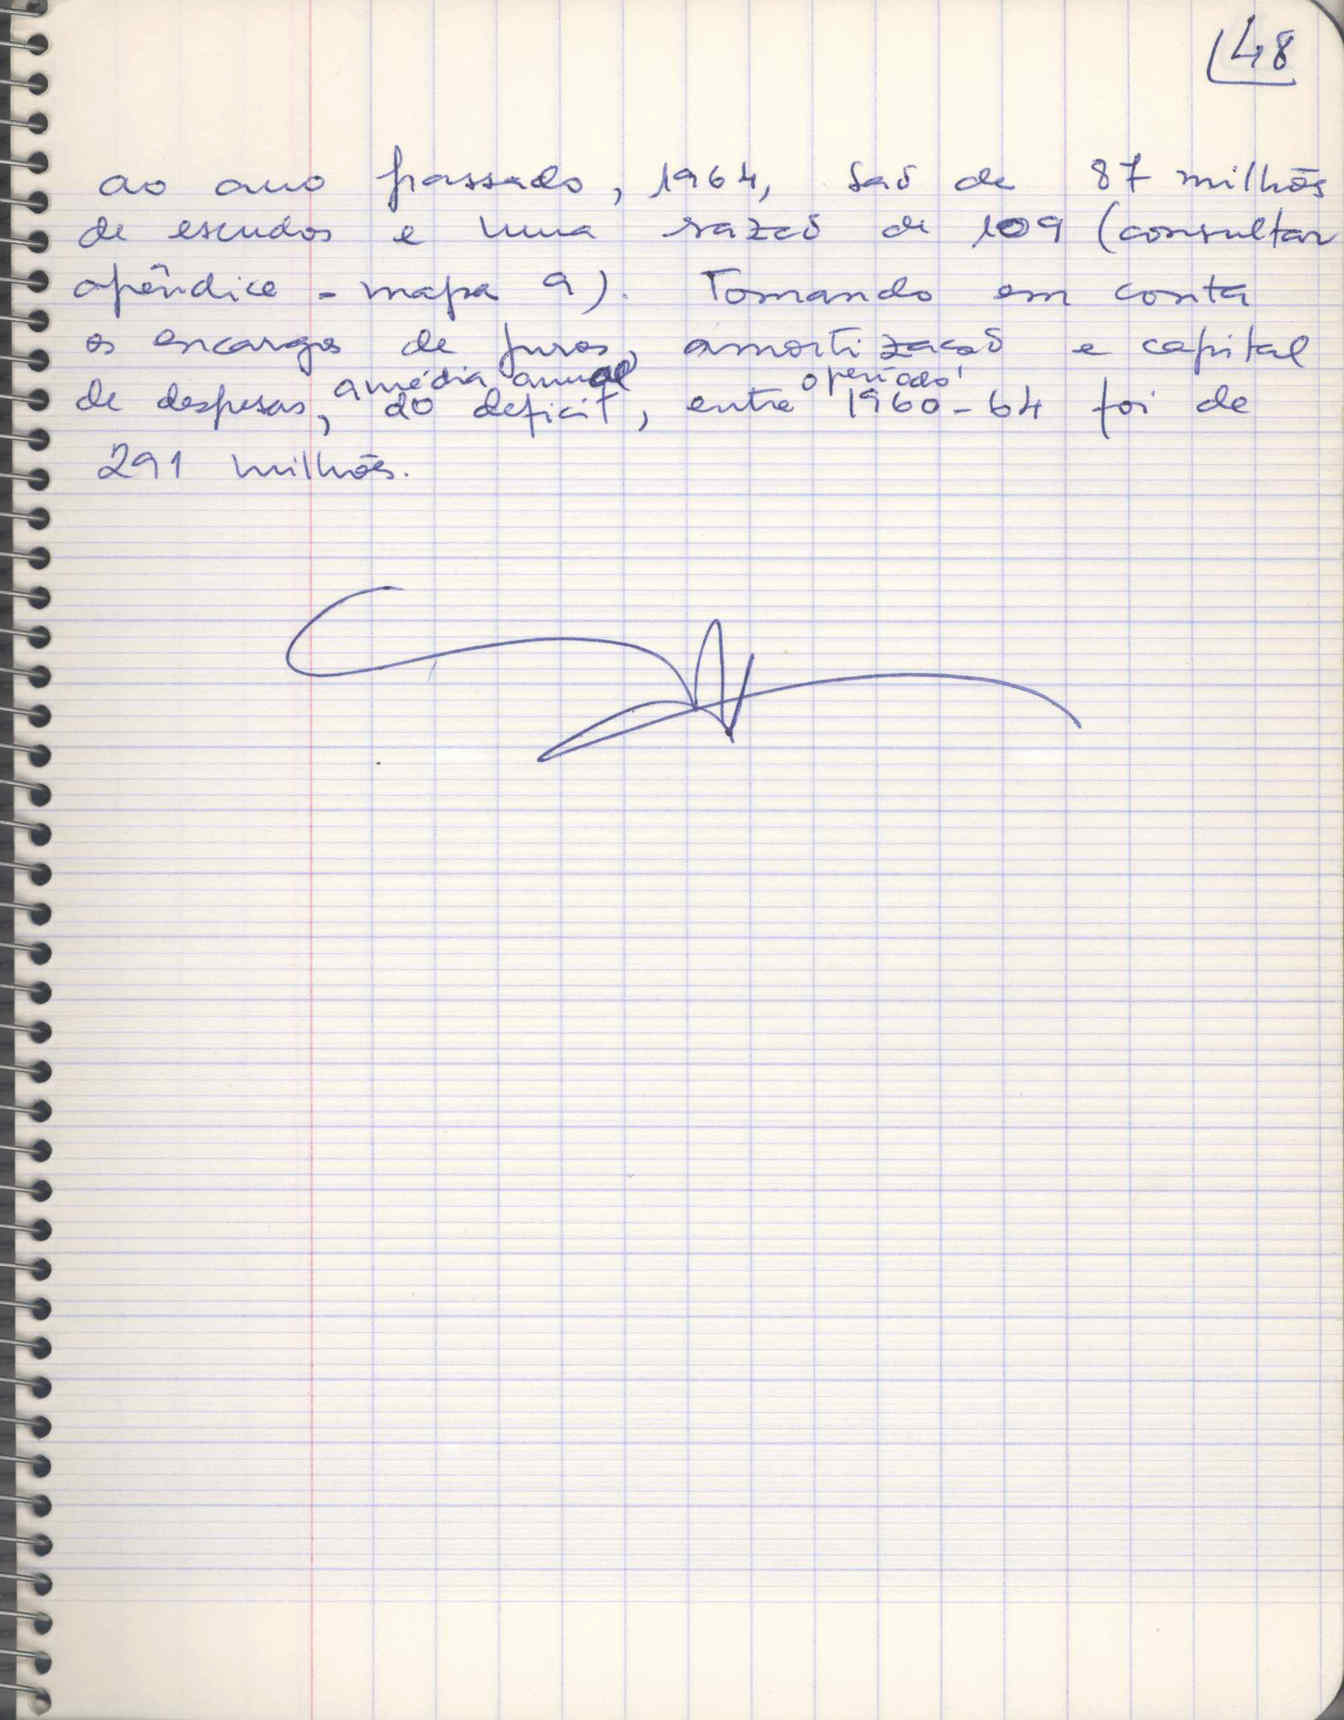 48
ao ano passado, 1964, saõ de 87 milhões
de escudos e uma razaõ de 109 (consultar
apêndice - mapa 9). Tomando em conta
os encargos de juros, amortizaçaõ e capital
a média anual o período
de despesas, do deficit, entre 1960-64 foi de
291 milhões.